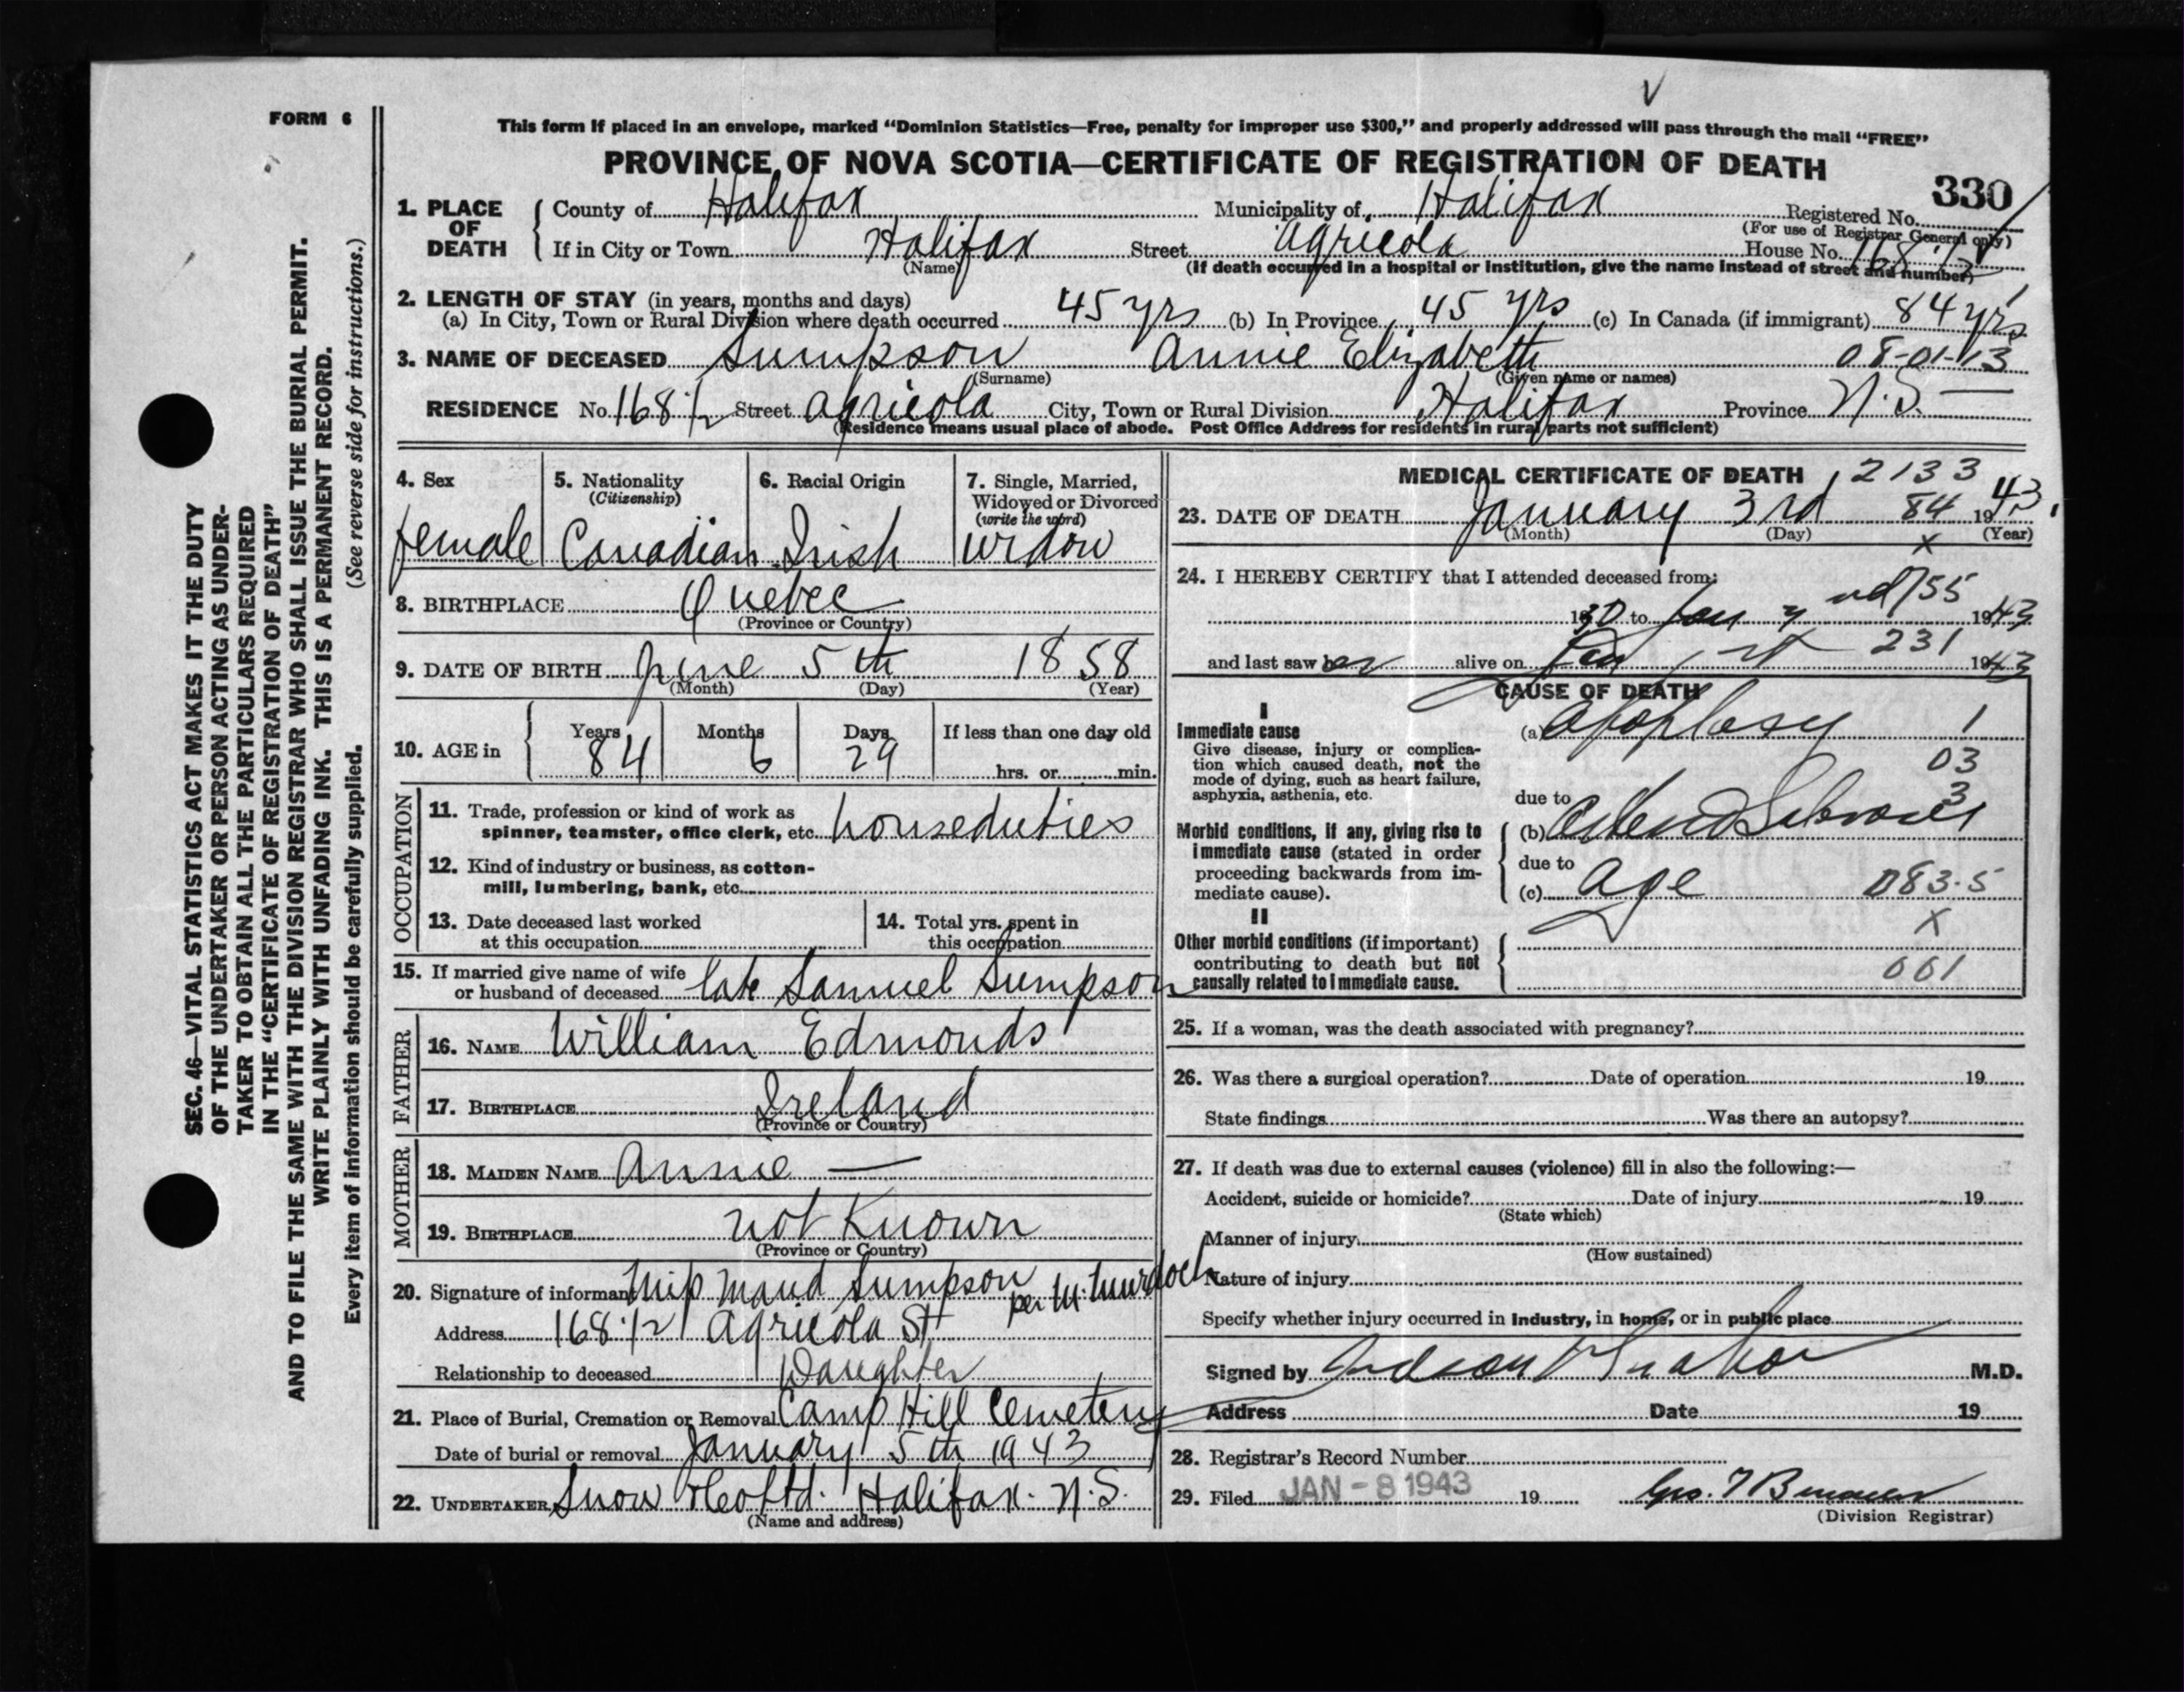 FORM 6
This form if placed in an envelope, marked “Dominion Statistics—Free, penalty for improper use $300,” and properly addressed will pass through the mail “FREE”
PROVINCE OF NOVA SCOTIA—CERTIFICATE OF REGISTRATION OF DEATH
330
1. PLACE OF DEATH
County of Halifax Municipality of Halifax Registered No.
(For use of Registrar General only)
If in City or Town Halifax Street Agricola House No. 168 1/2
(Name) (If death occurred in a hospital or institution, give the name instead of street and number)
2. LENGTH OF STAY (in years, months and days)
(a) In City, Town or Rural Division where death occurred 45 yrs (b) In Province 45 yrs (c) In Canada (if immigrant) 84 yrs
3. NAME OF DECEASED Sumpson Annie Elizabeth 08-01-13
(Surname) (Given name or names)
RESIDENCE No. 168 1/2 Street Agricola City, Town or Rural Division Halifax Province N.S.
(Residence means usual place of abode. Post Office Address for residents in rural parts not sufficient)
4. Sex
female
5. Nationality
(Citizenship)
Canadian
6. Racial Origin
Irish
7. Single, Married,
Widowed or Divorced
(write the word)
widow
8. BIRTHPLACE Quebec
(Province or Country)
9. DATE OF BIRTH June 5th 1858
(Month) (Day) (Year)
10. AGE in
Years 84
Months 6
Days 29
If less than one day old
hrs. or min.
OCCUPATION
11. Trade, profession or kind of work as
spinner, teamster, office clerk, etc. houseduties
12. Kind of industry or business, as cotton-
mill, lumbering, bank, etc.
13. Date deceased last worked
at this occupation
14. Total yrs. spent in
this occupation
15. If married give name of wife
or husband of deceased late Samuel Sumpson
FATHER
16. NAME William Edmonds
17. BIRTHPLACE Ireland
(Province or Country)
MOTHER
18. MAIDEN NAME Annie —
19. BIRTHPLACE not Known
(Province or Country)
20. Signature of informant Miss Maud Sumpson per M. Murdoch
Address 168 1/2 Agricola St
Relationship to deceased Daughter
21. Place of Burial, Cremation or Removal Camp Hill Cemetery
Date of burial or removal January 5th 1943
22. UNDERTAKER Snow & Co Ltd. Halifax. N.S.
(Name and address)
MEDICAL CERTIFICATE OF DEATH 2133
23. DATE OF DEATH January 3rd 84 1943.
(Month) (Day) (Year)
x
24. I HEREBY CERTIFY that I attended deceased from:
755
to Jan 1943
and last saw her alive on 231 1943
CAUSE OF DEATH
I
Immediate cause
Give disease, injury or complica-
tion which caused death, not the
mode of dying, such as heart failure,
asphyxia, asthenia, etc.
(a) Apoplexy 1
03
3
due to
Morbid conditions, if any, giving rise to
immediate cause (stated in order
proceeding backwards from im-
mediate cause).
(b)
due to
(c) Age 083.5
II
x
Other morbid conditions (if important)
contributing to death but not
causally related to immediate cause.
061
25. If a woman, was the death associated with pregnancy?
26. Was there a surgical operation? Date of operation 19
State findings Was there an autopsy?
27. If death was due to external causes (violence) fill in also the following:—
Accident, suicide or homicide? Date of injury 19
(State which)
Manner of injury
(How sustained)
Nature of injury
Specify whether injury occurred in industry, in home, or in public place
Signed by Judson V Graham M.D.
Address Date 19
28. Registrar's Record Number
29. Filed JAN - 8 1943 19
(Division Registrar)
SEC. 46—VITAL STATISTICS ACT MAKES IT THE DUTY
OF THE UNDERTAKER OR PERSON ACTING AS UNDER-
TAKER TO OBTAIN ALL THE PARTICULARS REQUIRED
IN THE “CERTIFICATE OF REGISTRATION OF DEATH”
AND TO FILE THE SAME WITH THE DIVISION REGISTRAR WHO SHALL ISSUE THE BURIAL PERMIT.
WRITE PLAINLY WITH UNFADING INK. THIS IS A PERMANENT RECORD.
Every item of information should be carefully supplied. (See reverse side for instructions.)